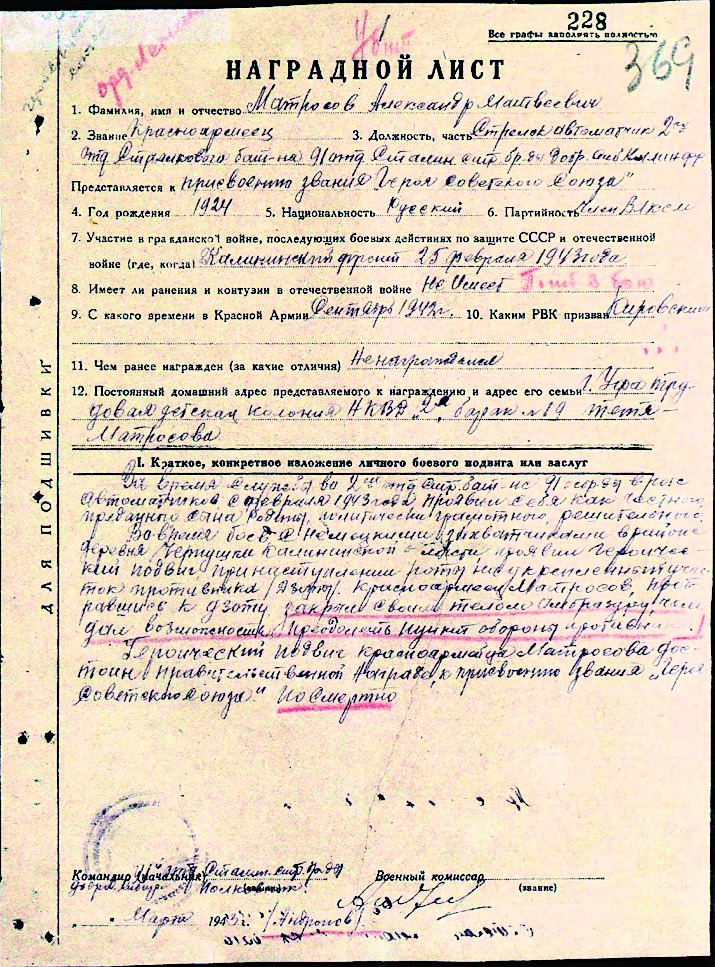 228
Все графы заполнять полностью
369
НАГРАДНОЙ ЛИСТ
1. Фамилия, имя и отчество Матросов Александр Матвеевич
2. Звание Красноармеец 3. Должность, часть Стрелок автоматчик 2го
отд. Стрелкового бат-на 91 отд. Сталин. стр. бр-ды добр. Сиб Калин фр
Представляется к присвоению звания "Героя Советского Союза"
4. Год рождения 1924 5. Национальность Русский 6. Партийность Член ВЛКСМ
7. Участие в гражданской войне, последующих боевых действиях по защите СССР и отечественной
войне (где, когда) Калининский фронт 25 февраля 1943 года
8. Имеет ли ранения и контузии в отечественной войне Не Имеет
9. С какого времени в Красной Армии Сентябрь 1942г. 10. Каким РВК призван Кировским
11. Чем ранее награжден (за какие отличия) Ненаграждался
12. Постоянный домашний адрес представляемого к награждению и адрес его семьи г. Уфа тру-
довая детская колония НКВД 2а барак №19 тетя
Матросова
ДЛЯ ПОДШИВКИ
II. Краткое, конкретное изложение личного боевого подвига или заслуг
За время Службы во 2ом отд. стр. бат-не 91 осбр-ды в роте
автоматчиков с февраля 1943 года проявил себя как честного,
преданного сына Родины, политически грамотного, решительного.
Во время боев с немецкими захватчиками в районе
деревня Чернушки Калининской области проявил героичес-
кий подвиг при наступлении роты на укрепленный учас-
ток противника (дзоты) Красноармеец Матросов, поб-
равшись к дзоту закрыл своим телом амбразуру, чем
дал возможность преодолеть пункт обороны противни
Героический подвиг красноармейца Матросова дос-
тоин правительственной награды, к присвоению звания "Героя
Советского Союза" Посмертно
Командир (начальник) Сталин. стр. бр-ды Военный комиссар
Полковник (звание)
Марта 1943 г. /Андронов/